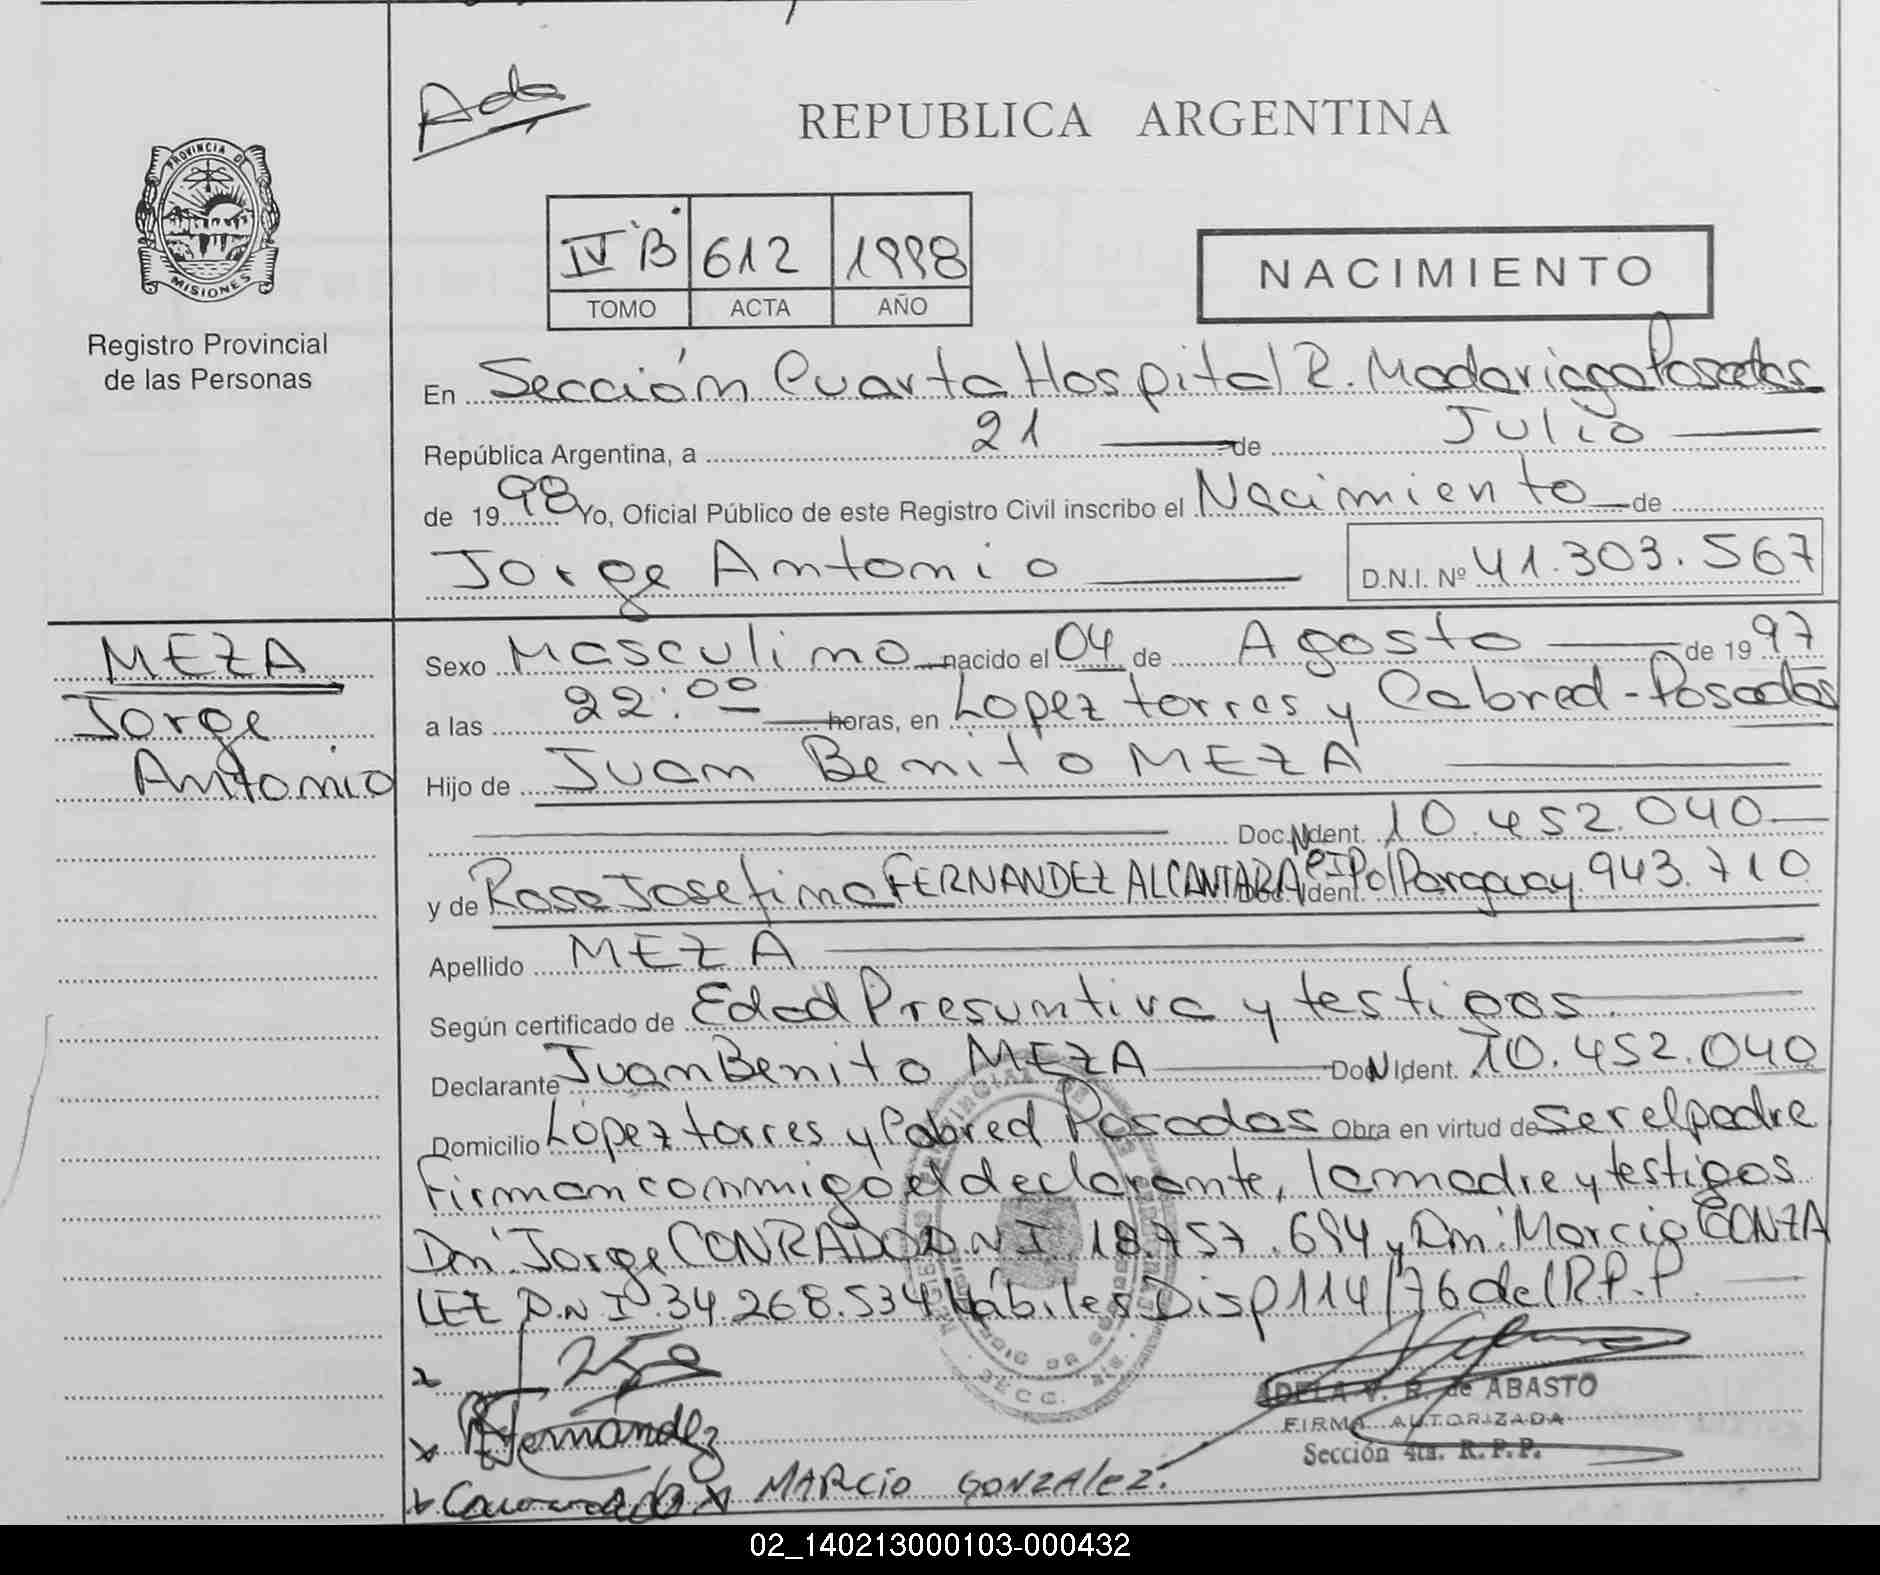 Ada
REPUBLICA ARGENTINA
PROVINCIA DE
MISIONES
Registro Provincial
de las Personas
IV B 612 1998
TOMO ACTA AÑO
NACIMIENTO
En Sección Cuarta Hospital R. Madariaga Posadas
República Argentina, a 21 de Julio
de 1998 Yo, Oficial Público de este Registro Civil inscribo el Nacimiento de
Jorge Antonio D.N.I. Nº 41.303.567
MEZA
Jorge
Antonio
Sexo Masculino nacido el 04 de Agosto de 1997
a las 22:00 horas, en Lopez torres y Cabred - Posadas
Hijo de Juan Benito MEZA
Doc. Ident. 10.452.040
y de Rosa Josefina FERNANDEZ ALCANTARA Doc. Ident. CI Pol Paraguay 943.710
Apellido MEZA
Según certificado de Edad Presuntiva y testigos.
Declarante Juan Benito MEZA Doc. Ident. 10.452.040
Domicilio López torres y Cabred Posadas Obra en virtud de ser el padre
firman conmigo el declarante, la madre y testigos
Dn. Jorge CONRADO D.N.I. 18.757.694 y Dn. Marcio GONZA
LEZ D.N.I. 34.268.534 Hábiles Disp 114/76 del R.P.P.
ADELA V. R. de ABASTO
FIRMA AUTORIZADA
Sección 4ta. R.P.P.
Fernandez
x MARCIO GONZALEZ.
02_140213000103-000432